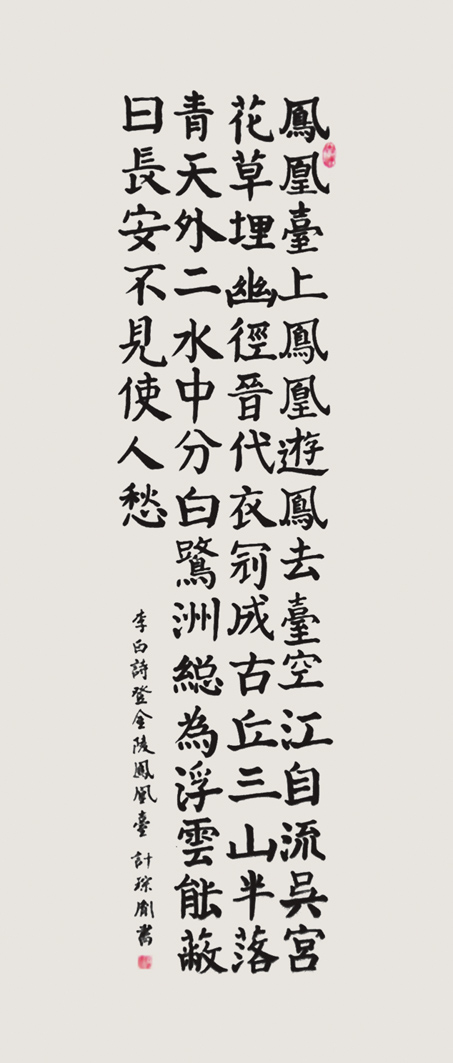 鳳凰臺上鳳凰遊鳳去臺空江自流吳宮
花草埋幽徑晉代衣冠成古丘三山半落
青天外二水中分白鷺洲総為浮雲能蔽
日長安不見使人愁
李白詩登金陵鳳凰臺 計琮書